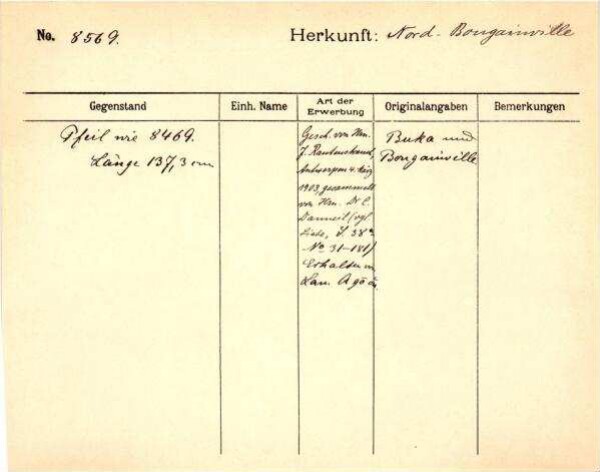 No. 8569.
Herkunft: Nord-Bougainville
Gegenstand
Einh. Name
Art der
Erwerbung
Originalangaben
Bemerkungen
Pfeil wie 8469.
Länge 137,3 cm
Gesch. von Hrn.
J. Rautenstrauch,
Antwerpen 4. 
1903, gesammelt
von Hrn. Dr. C.
Danneil (vgl.
Liste, S. 38a
No 31-181)
Erhalten
Buka und
Bougainville